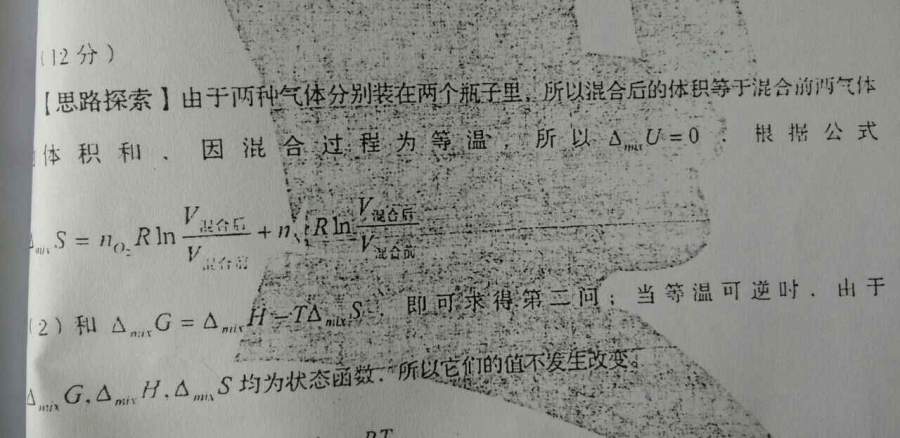 (12分)
【思路探索】由于两种气体分别装在两个瓶子里，所以混合后的体积等于混合前两气体
体积和．因混合过程为等温，所以 Δ_mix U = 0 ．根据公式
Δ_mix S = n_O₂ R ln V_混合后/V_混合前 + n R ln V_混合后/V_混合前
(2) 和 Δ_mix G = Δ_mix H − TΔ_mix S ，即可求得第二问；当等温可逆时．由于
Δ_mix G, Δ_mix H, Δ_mix S 均为状态函数．所以它们的值不发生改变。